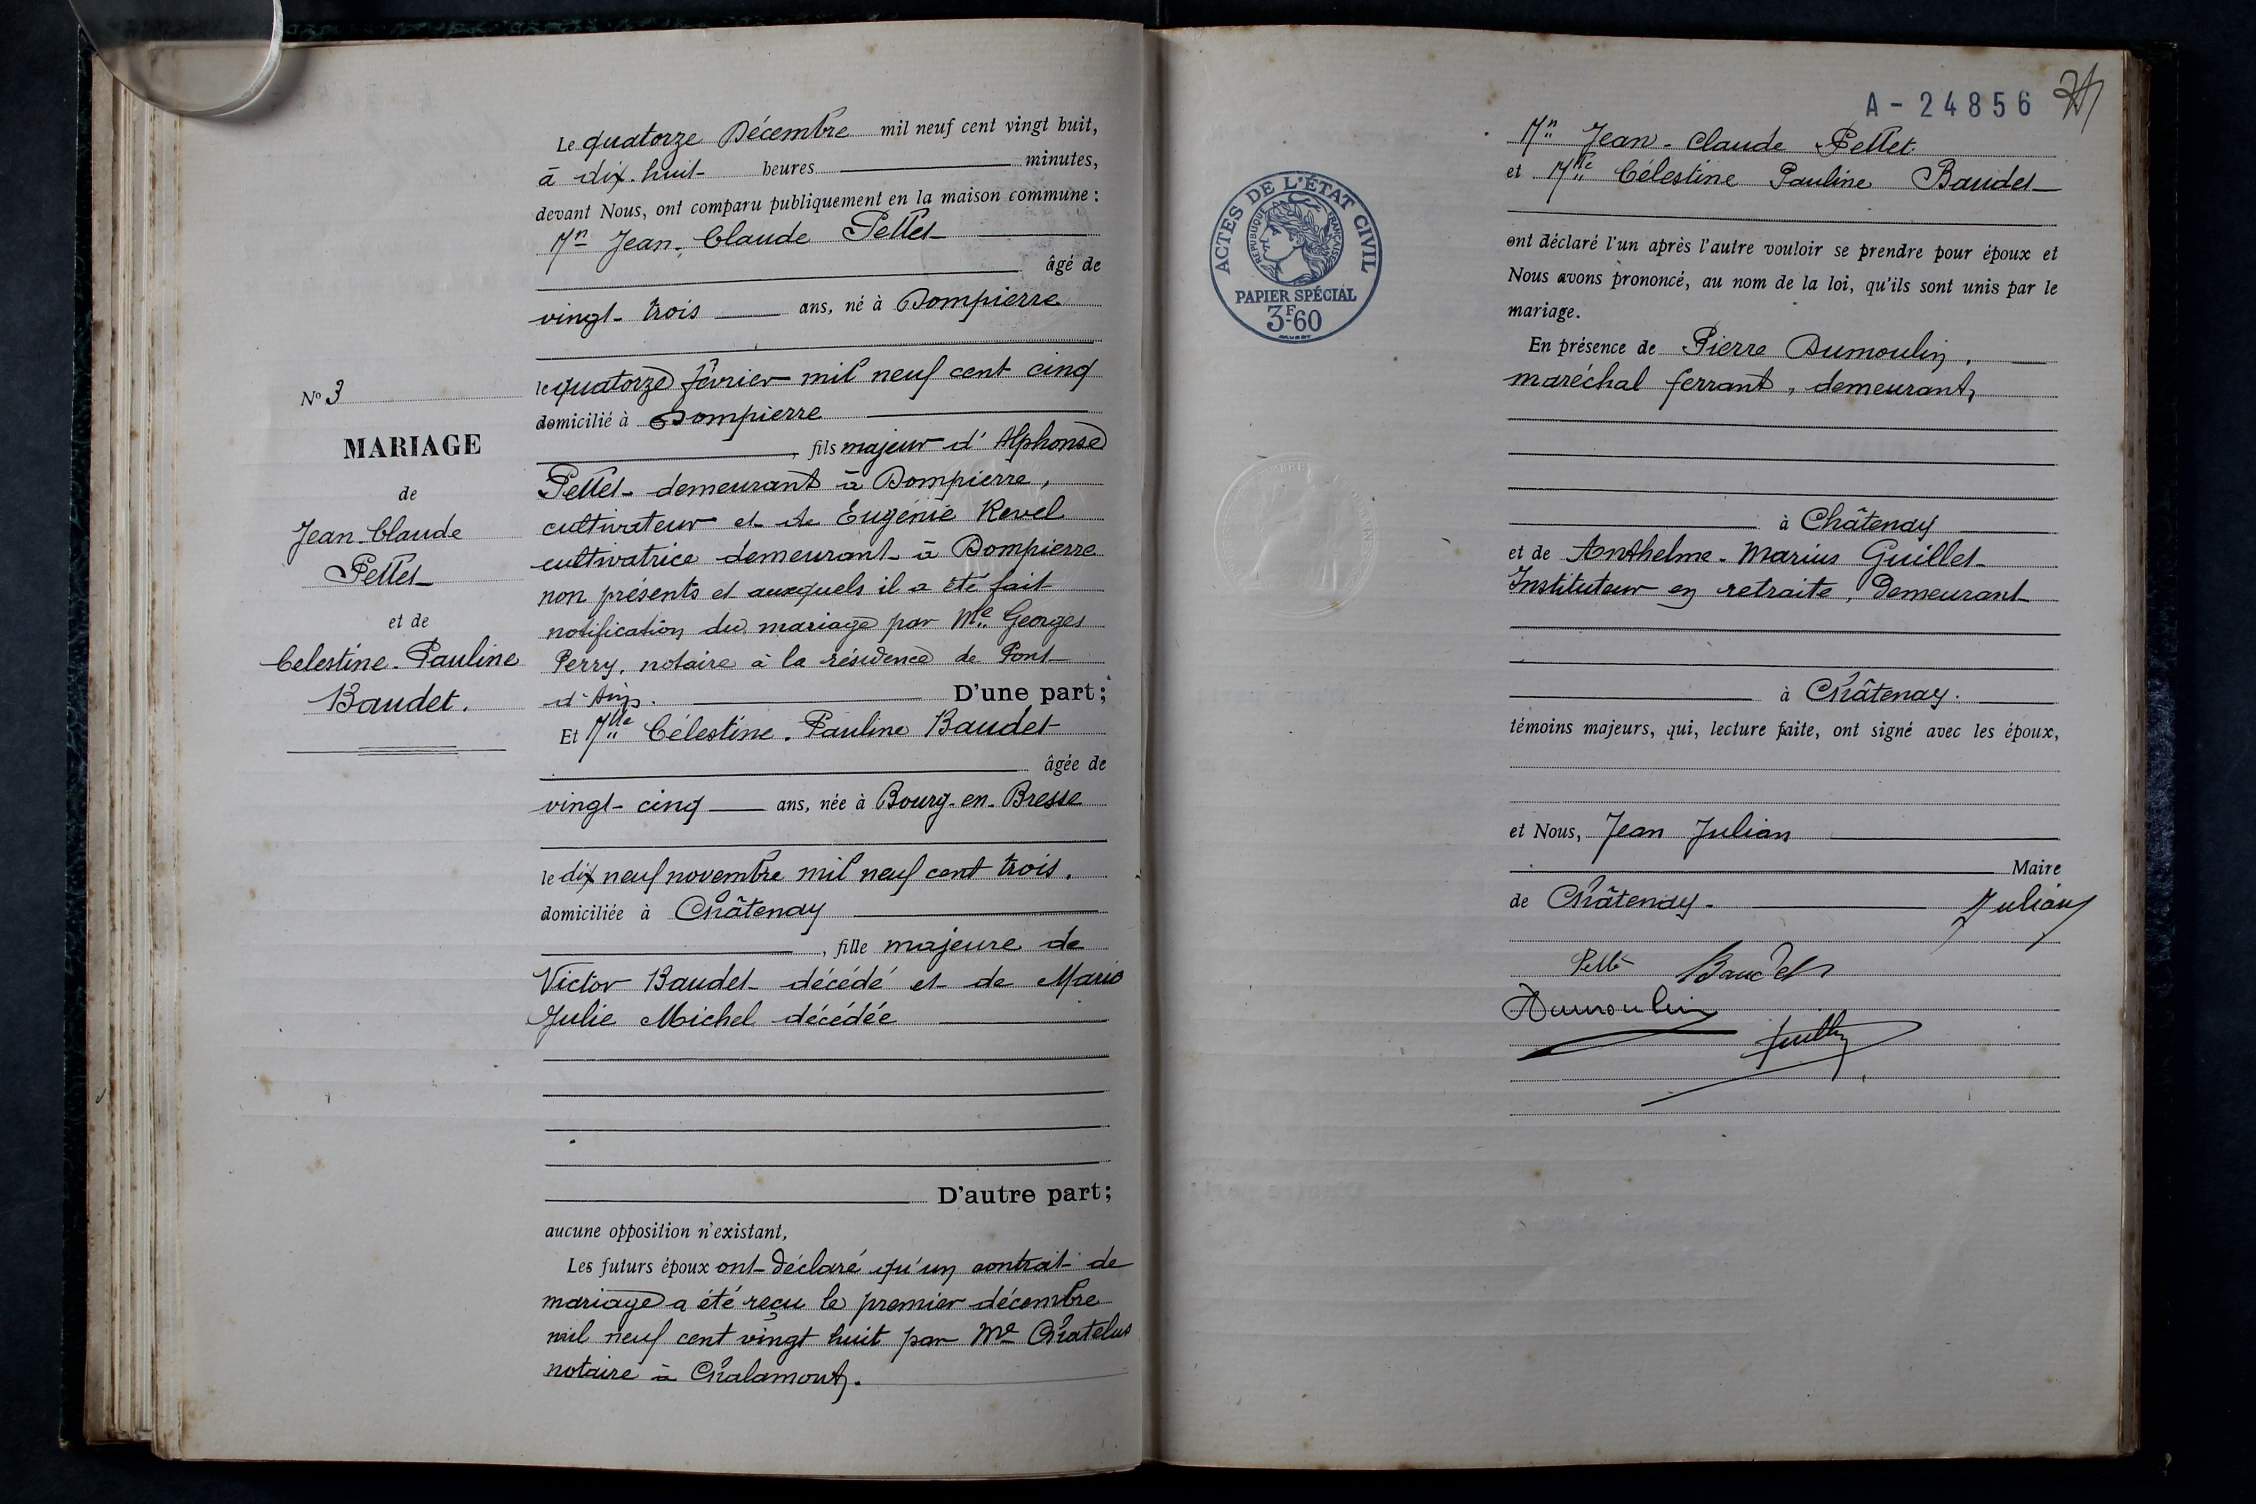 Le quatorze Décembre mil neuf cent vingt huit,
à dix-huit heures minutes,
devant Nous, ont comparu publiquement en la maison commune :
Mr Jean-Claude Pellet
âgé de
vingt-trois ans, né à Dompierre
le quatorze février mil neuf cent cinq
domicilié à Dompierre
, fils majeur d'Alphonse
Pellet demeurant à Dompierre,
cultivateur et de Eugénie Revel
cultivatrice demeurant à Dompierre
non présents et auxquels il a été fait
notification du mariage par Me Georges
Perry, notaire à la résidence de Pont
d'Ain. D'une part ;
Et Mlle Célestine-Pauline Baudet
âgée de
vingt-cinq ans, née à Bourg-en-Bresse
le dix neuf novembre mil neuf cent trois.
domiciliée à Châtenay
, fille majeure de
Victor Baudet décédé et de Marie
Julie Michel décédée
D'autre part ;
aucune opposition n'existant,
Les futurs époux ont déclaré qu'un contrat de
mariage a été reçu le premier décembre
mil neuf cent vingt huit par Me Chatelus
notaire à Chalamont.
No 3
MARIAGE
de
Jean-Claude
Pellet
et de
Celestine-Pauline
Baudet.
A - 24856
Mr Jean-Claude Pellet
et Mlle Célestine Pauline Baudet
ACTES DE L'ÉTAT CIVIL
REPUBLIQUE FRANÇAISE
PAPIER SPÉCIAL
3F60
ont déclaré l'un après l'autre vouloir se prendre pour époux et
Nous avons prononcé, au nom de la loi, qu'ils sont unis par le
mariage.
En présence de Pierre Dumoulin,
maréchal ferrant, demeurant,
à Châtenay
et de Anthelme-Marius Guillet
Instituteur en retraite, demeurant
à Châtenay.
témoins majeurs, qui, lecture faite, ont signé avec les époux,
et Nous, Jean Julian
Maire
de Châtenay. Julian
Baudet
Dumoulin